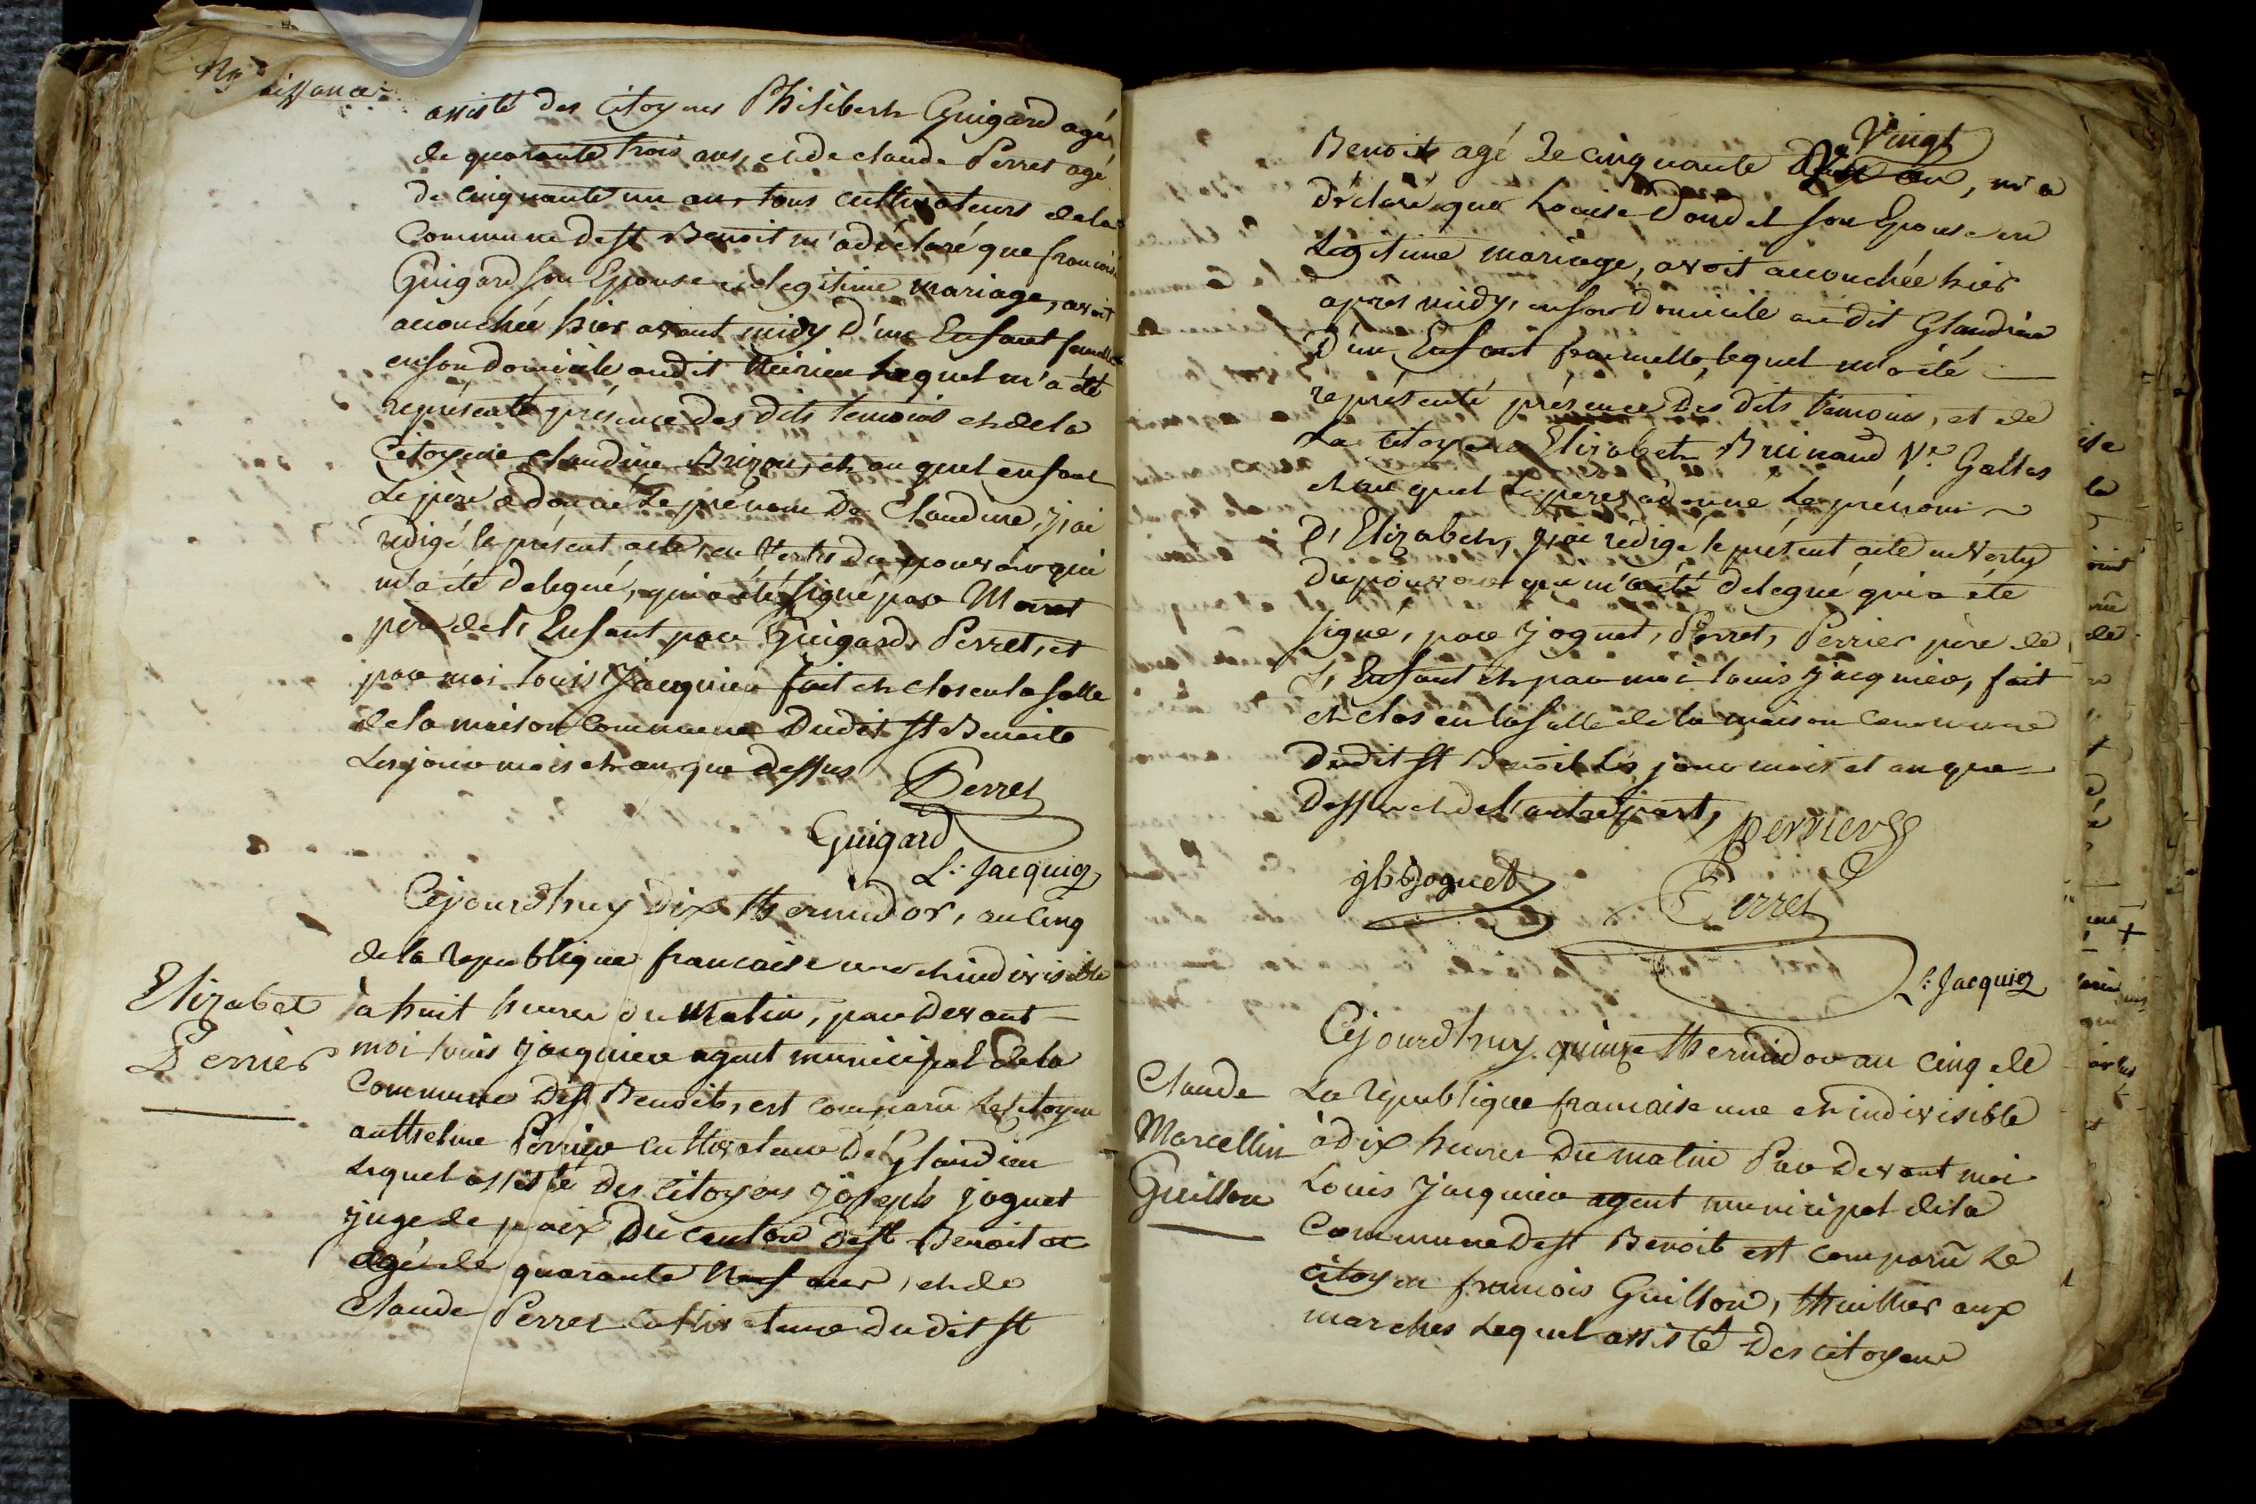 Naissance
assisté des citoyens Philibert Guigard agé
de quarante trois ans, et de claude Perret agé
de cinquante un ans tous cultivateurs de la
Commune de st Benoit m'a déclaré que francoise
Guigard son Epouse en legitime mariage, avoit
accouchée hier avant midy d'un Enfant femelle
en son domicile audit lequel m'a été
représenté présence des dits temoins et de la
Citoyene claudine Brizon, et au quel enfant
Le père a donné Le prénom De Claudine, j'ai
rédigé le présent acte, en Vertu du pouvoir qui
m'a été delegué, qui a été signé par Moiret
père de l'Enfant par Guigard, Perret, et
par moi Louis Jacquier fait et clos en la salle
de la maison Commune Dudit st Benoite
Les jour mois et an que dessus
Perret
Guigard
L: Jacquier
Elizabet
Perrier
Cejourdhuy dix thermidor, an cinq
de la republique francaise une et indivisible
a huit heures du matin, par Devant
moi Louis jacquier agent municipal De la
Commune De st Benoit, est comparu Le citoyen
anthelme Perrier cultivateur De Glandieu
Lequel assisté des citoyens joseph joguet
juge de paix Du canton De st Benoit
agé de quarante Neuf ans, et de
Claude Perret cultivateur du dit st
Benoit agé de cinquante Vingt un, m'a
Déclaré que Louise Dondel son Epouse en
Legitime mariage, avoit accouchée hier
apres midy, en son Domicile au dit Glandieu
D'un Enfant foemelle, lequel m'a été
représenté présence Des dits temoins, et de
La citoyene Elizabeth Bruinaud Ve Gallas
et au quel Le pere a donné Le prénom
D'Elizabeth, j'ai rédigé le présent acte en Vertu
Du pouvoir qui m'a été delegué qui a été
signé, par joguet, Perret, Perrier père de
L'Enfant et par moi Louis jacquier, fait
et clos en la salle de la maison commune
Dudit st Benoit Les jour mois et an que
Dessus et de l'autre part,
perrier
jh joguet
Perret
L: Jacquier
Claude
Marcellin
Guillon
Cejourdhuy quinze thermidor an cinq de
La republique francaise une et indivisible
à dix heures Du matin Par Devant moi
Louis Jacquier agent municipal de la
Commune De st Benoit est comparu Le
citoyen francois Guillon, thuillier aux
marches Lequel assisté Des citoyens